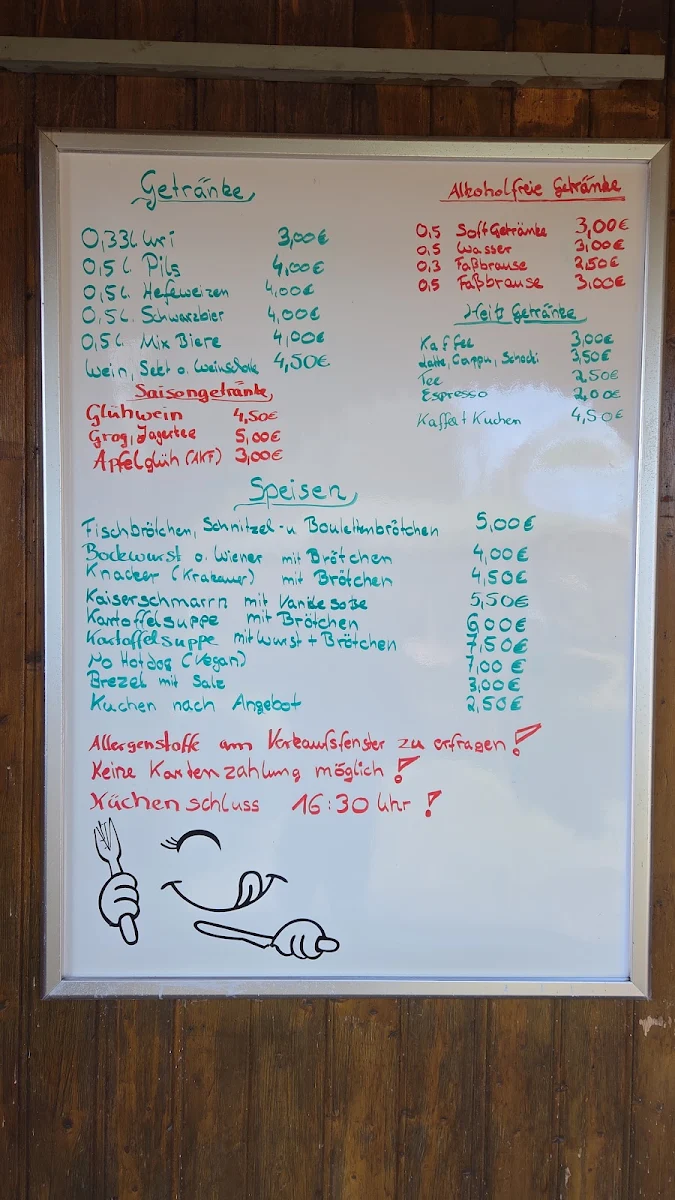 Getränke
0,33l Uri 3,00€
0,5 l. Pils 4,00€
0,5 l. Hefeweizen 4,00€
0,5 l. Schwarzbier 4,00€
0,5 l. Mix Biere 4,00€
Wein, Sekt o. Weinschorle 4,50€
Saisongetränke
Glühwein 4,50€
Grog, Jagertee 5,00€
Apfelglüh (AKF) 3,00€
Alkoholfreie Getränke
0,5 Softgetränke 3,00€
0,5 Wasser 3,00€
0,3 Faßbrause 2,50€
0,5 Faßbrause 3,00€
Heiß Getränke
Kaffee 3,00€
Latte, Cappu, Schoki 3,50€
Tee 2,50€
Espresso 2,00€
Kaffee + Kuchen 4,50€
Speisen
Fischbrötchen, Schnitzel- u Boulettenbrötchen 5,00€
Bockwurst o. Wiener mit Brötchen 4,00€
Knacker (Krakauer) mit Brötchen 4,50€
Kaiserschmarrn mit Vanillesoße 5,50€
Kartoffelsuppe mit Brötchen 6,00€
Kartoffelsuppe mit Wurst + Brötchen 7,50€
No Hotdog (Vegan) 7,00€
Brezel mit Salz 3,00€
Kuchen nach Angebot 2,50€
Allergenstoffe am Verkaufsfenster zu erfragen!
Keine Kartenzahlung möglich!
Küchenschluss 16:30 Uhr!